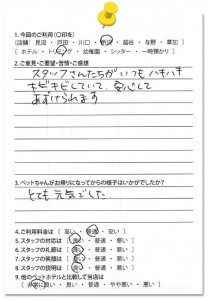 1. 今回のご利用(〇印を)
[店舗: 見沼 ・ 戸田 ・ 川口 ・ 野沢 ・ 越谷 ・ 与野 ・ 草加 ]
[ ホテル ・ トリミング ・ 幼稚園 ・ シッター ・ 一時預かり ]
2. ご意見・ご要望・苦情・ご感想
スタッフさんたちがいつもハキハキ
キビキビしていて、安心して
あずけられます
3. ペットちゃんがお帰りになってからの様子はいかがでしたか?
とても元気でした。
4. ご利用料金は [ 高い ・ 普通 ・ 安い ]
5. スタッフの対応は [ 良い ・ 普通 ・ 悪い ]
6. スタッフの礼節は [ 良い ・ 普通 ・ 悪い ]
7. スタッフの笑顔は [ 良い ・ 普通 ・ 悪い ]
8. スタッフの説明は [ 良い ・ 普通 ・ 悪い ]
9. 他のペットホテルと比較して当店は
[ 非常に良い ・ 良い ・ 普通 ・ やや悪い ・ 悪い ]